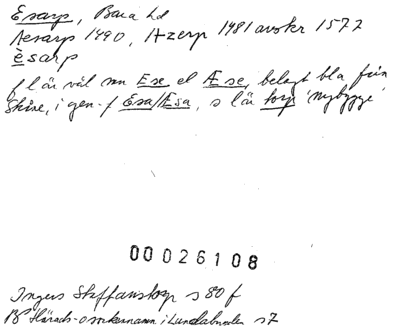 Esarp, Bara hd
Aesarp 1490, Azerp 1481 avskr 1577
èsarp
f lär väl mn Ese el Æse, belagt bla från
Skåne, i gen-f Esa/Æsa, s lär torp 'nybygge'
00026108
Ingers Staffanstorp s 80 f
Härads- o sockennamn i Lundabruden s 7